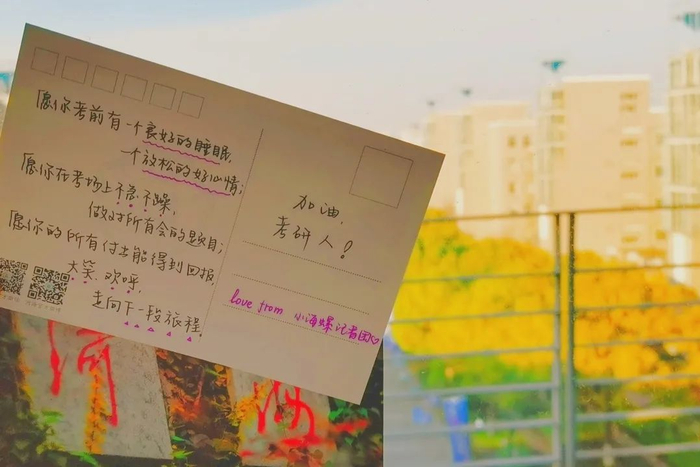 愿你考前有一个良好的睡眠,
一个放松的好心情;
愿你在考场上不急不躁,
做对所有会的题目;
愿你的所有付出能得到回报,
大笑、欢呼,
走向下一段旅程.
加油,
考研人!
love from 小海螺记者团